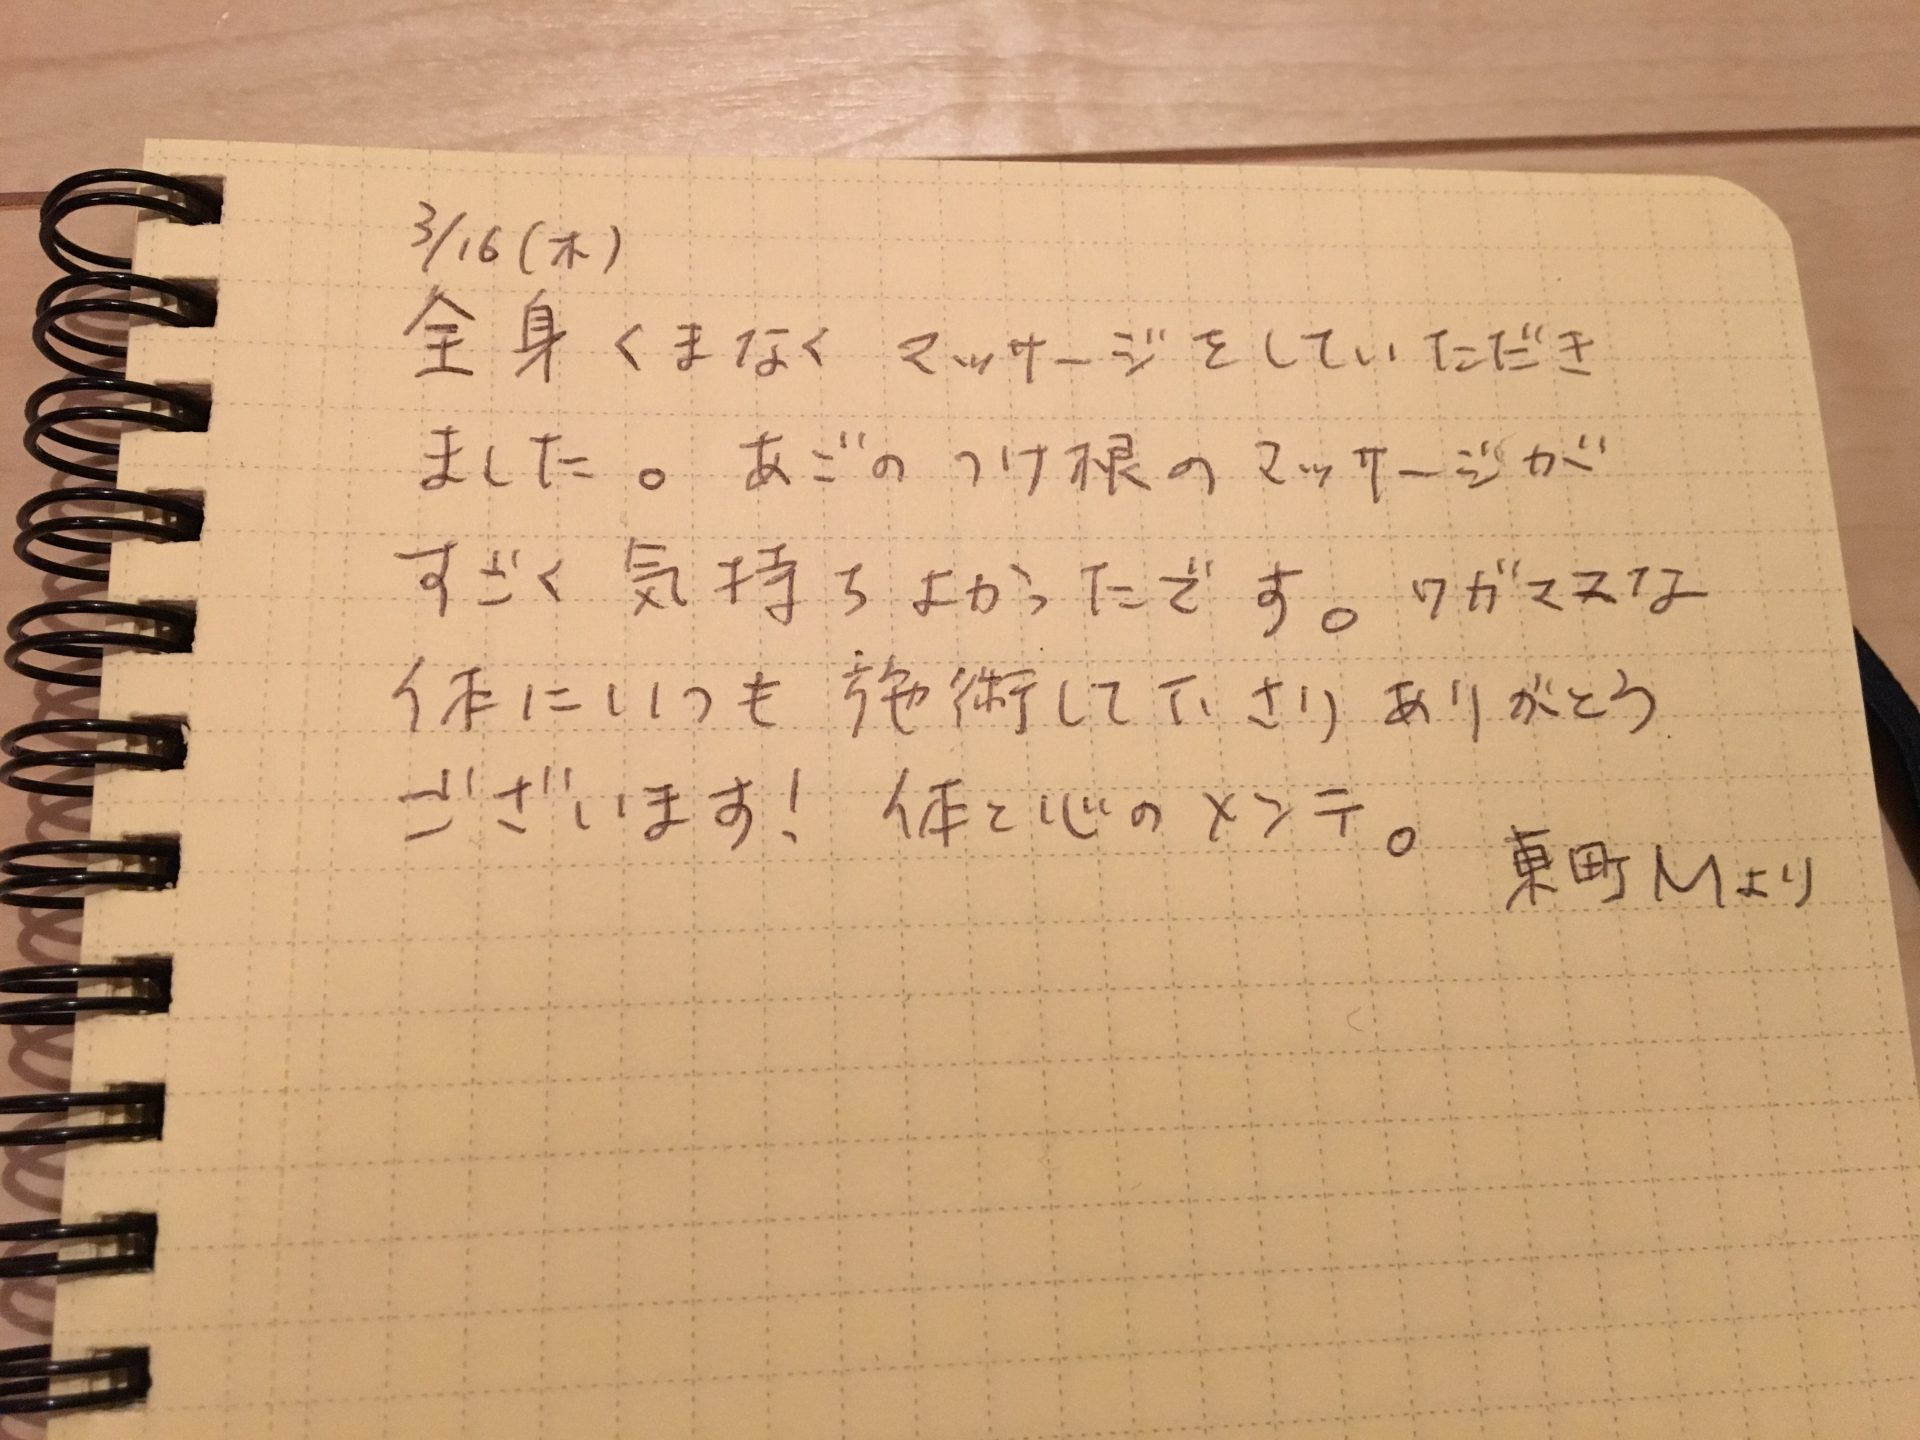 3/16(木)
全身くまなくマッサージをしていただき
ました。あごのつけ根のマッサージが
すごく気持ちよかったです。ワガママな
体にいつも施術して下さりありがとう
ございます！体と心のメンテ。
東町Mより